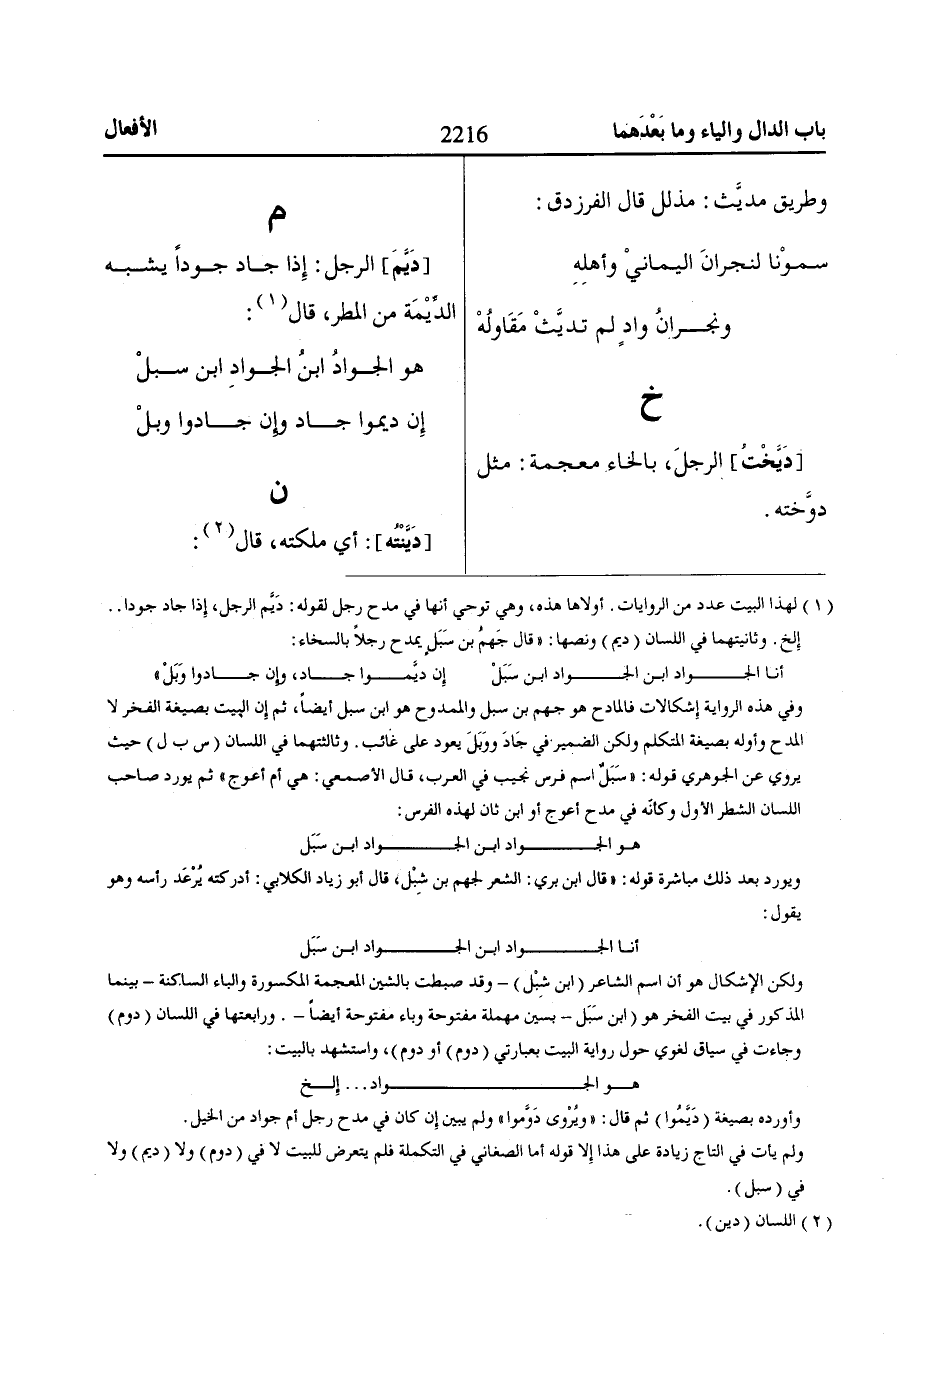 باب الدال والياء وما بَعْدَهما
2216
الأفعال
وطريق مديَّث: مذلل قال الفرزدق:
سموْنا لنجرانَ اليمانيْ وأهلِهِ
ونجـــرانُ وادٍ لم تديَّثْ مَقَاولُهْ
خ
[دَيَّخْتُ] الرجلَ، بالخاء معجمة: مثل
دوَّخته.
م
[دَيَّمَ] الرجل: إذا جاد جوداً يشبه
الدِّيْمَة من المطر، قال(١):
هو الجوادُ ابنُ الجوادِ ابن سبلْ
إن ديموا جاد وإن جادوا وبلْ
ن
[دَيَّنْتُه]: أي ملكته، قال(٢):
(١) لهذا البيت عدد من الروايات. أولاها هذه، وهي توحي أنها في مدح رجل لقوله: دَيَّم الرجل، إذا جاد جودا..
إلخ. وثانيتهما في اللسان (ديم) ونصها: «قال جَهمُ بن سَبَلٍ يمدح رجلاً بالسخاء:
أنا الجــواد ابن الجــواد ابن سَبَلْ إن ديَّمــوا جــاد، وإن جــادوا وَبَلْ»
وفي هذه الرواية إشكالات فالمادح هو جهم بن سبل والممدوح هو ابن سبل أيضاً، ثم إن البيت بصيغة الفخر لا
المدح وأوله بصيغة المتكلم ولكن الضمير في جَادَ ووَبَلَ يعود على غائب. وثالثتهما في اللسان (س ب ل) حيث
يروي عن الجوهري قوله: «سَبَلٌ اسم فرس نجيب في العرب، قال الأصمعي: هي أم أعوج» ثم يورد صاحب
اللسان الشطر الأول وكأنّه في مدح أعوج أو ابن ثان لهذه الفرس:
هو الجــواد ابن الجــواد ابن سَبَل
ويورد بعد ذلك مباشرة قوله: «قال ابن بري: الشعر لجهم بن شِبْل، قال أبو زياد الكلابي: أدركته يُرْعَد رأسه وهو
يقول:
أنا الجــواد ابن الجــواد ابن سَبَل
ولكن الإشكال هو أن اسم الشاعر (ابن شِبْل) – وقد ضبطت بالشين المعجمة المكسورة والباء الساكنة – بينما
المذكور في بيت الفخر هو (ابن سَبَل – بسين مهملة مفتوحة وباء مفتوحة أيضاً – . ورابعتها في اللسان (دوم)
وجاءت في سياق لغوي حول رواية البيت بعبارتي (دوم) أو دوم)، واستشهد بالبيت:
هــو الجــواد... إلــخ
وأورده بصيغة (دَيَّمُوا) ثم قال: «ويُرْوى دَوَّموا» ولم يبين إن كان في مدح رجل أم جواد من الخيل.
ولم يأت في التاج زيادة على هذا إلا قوله أما الصغاني في التكملة فلم يتعرض للبيت لا في (دوم) ولا (ديم) ولا
في (سبل).
(٢) اللسان (دين).